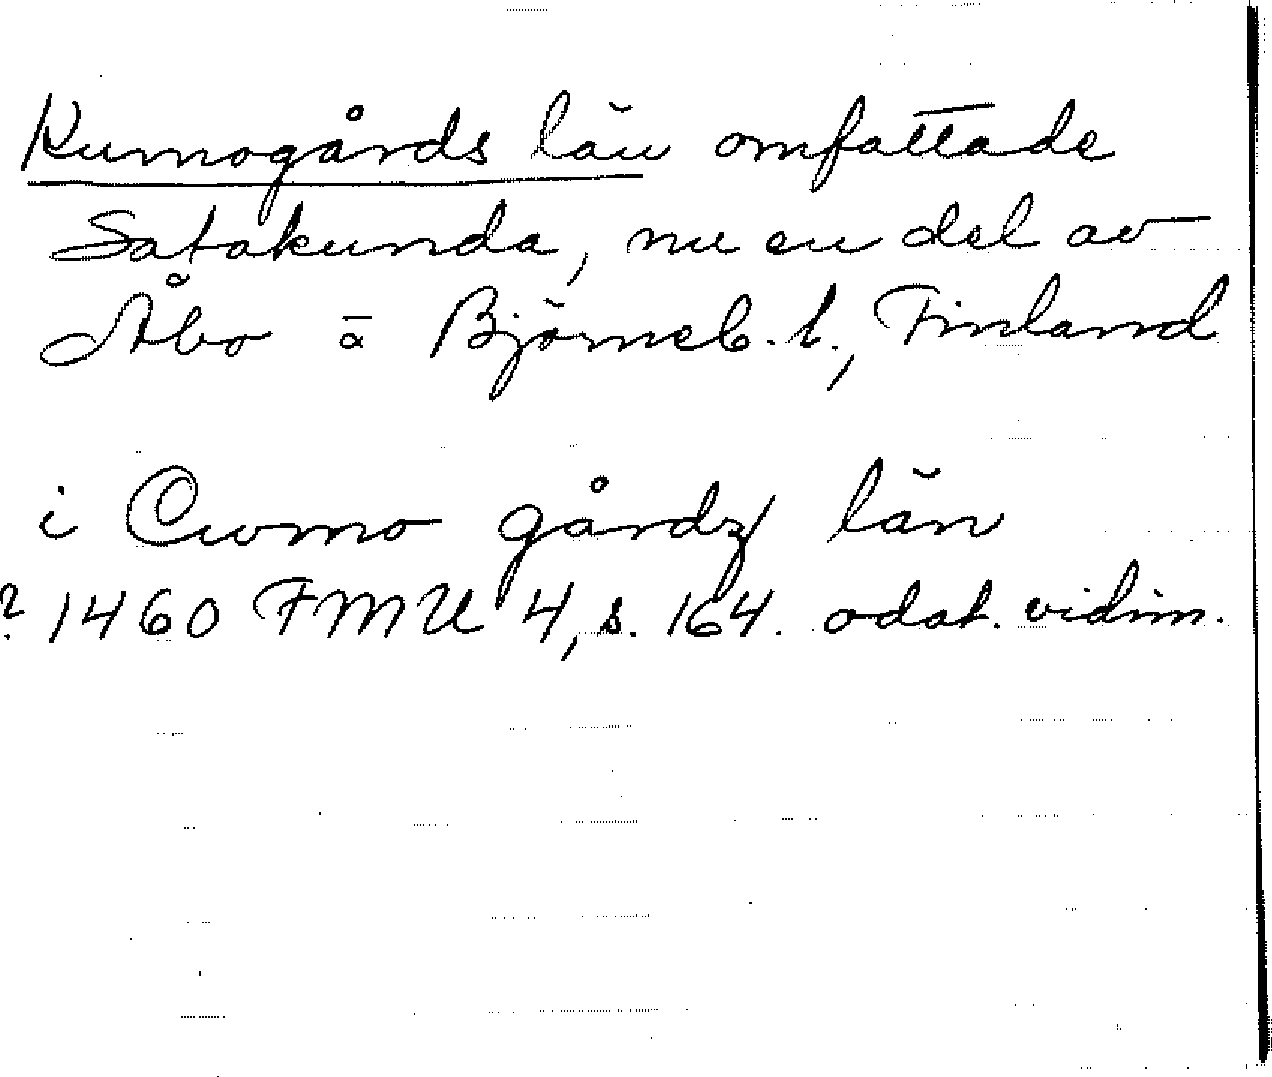 Kumogårds län omfattade
Satakunda, nu en del av
Åbo ä Björneb. l., Finland
i Cwmo gårdz län
? 1460 FMU 4, s. 164. odat. vidim.